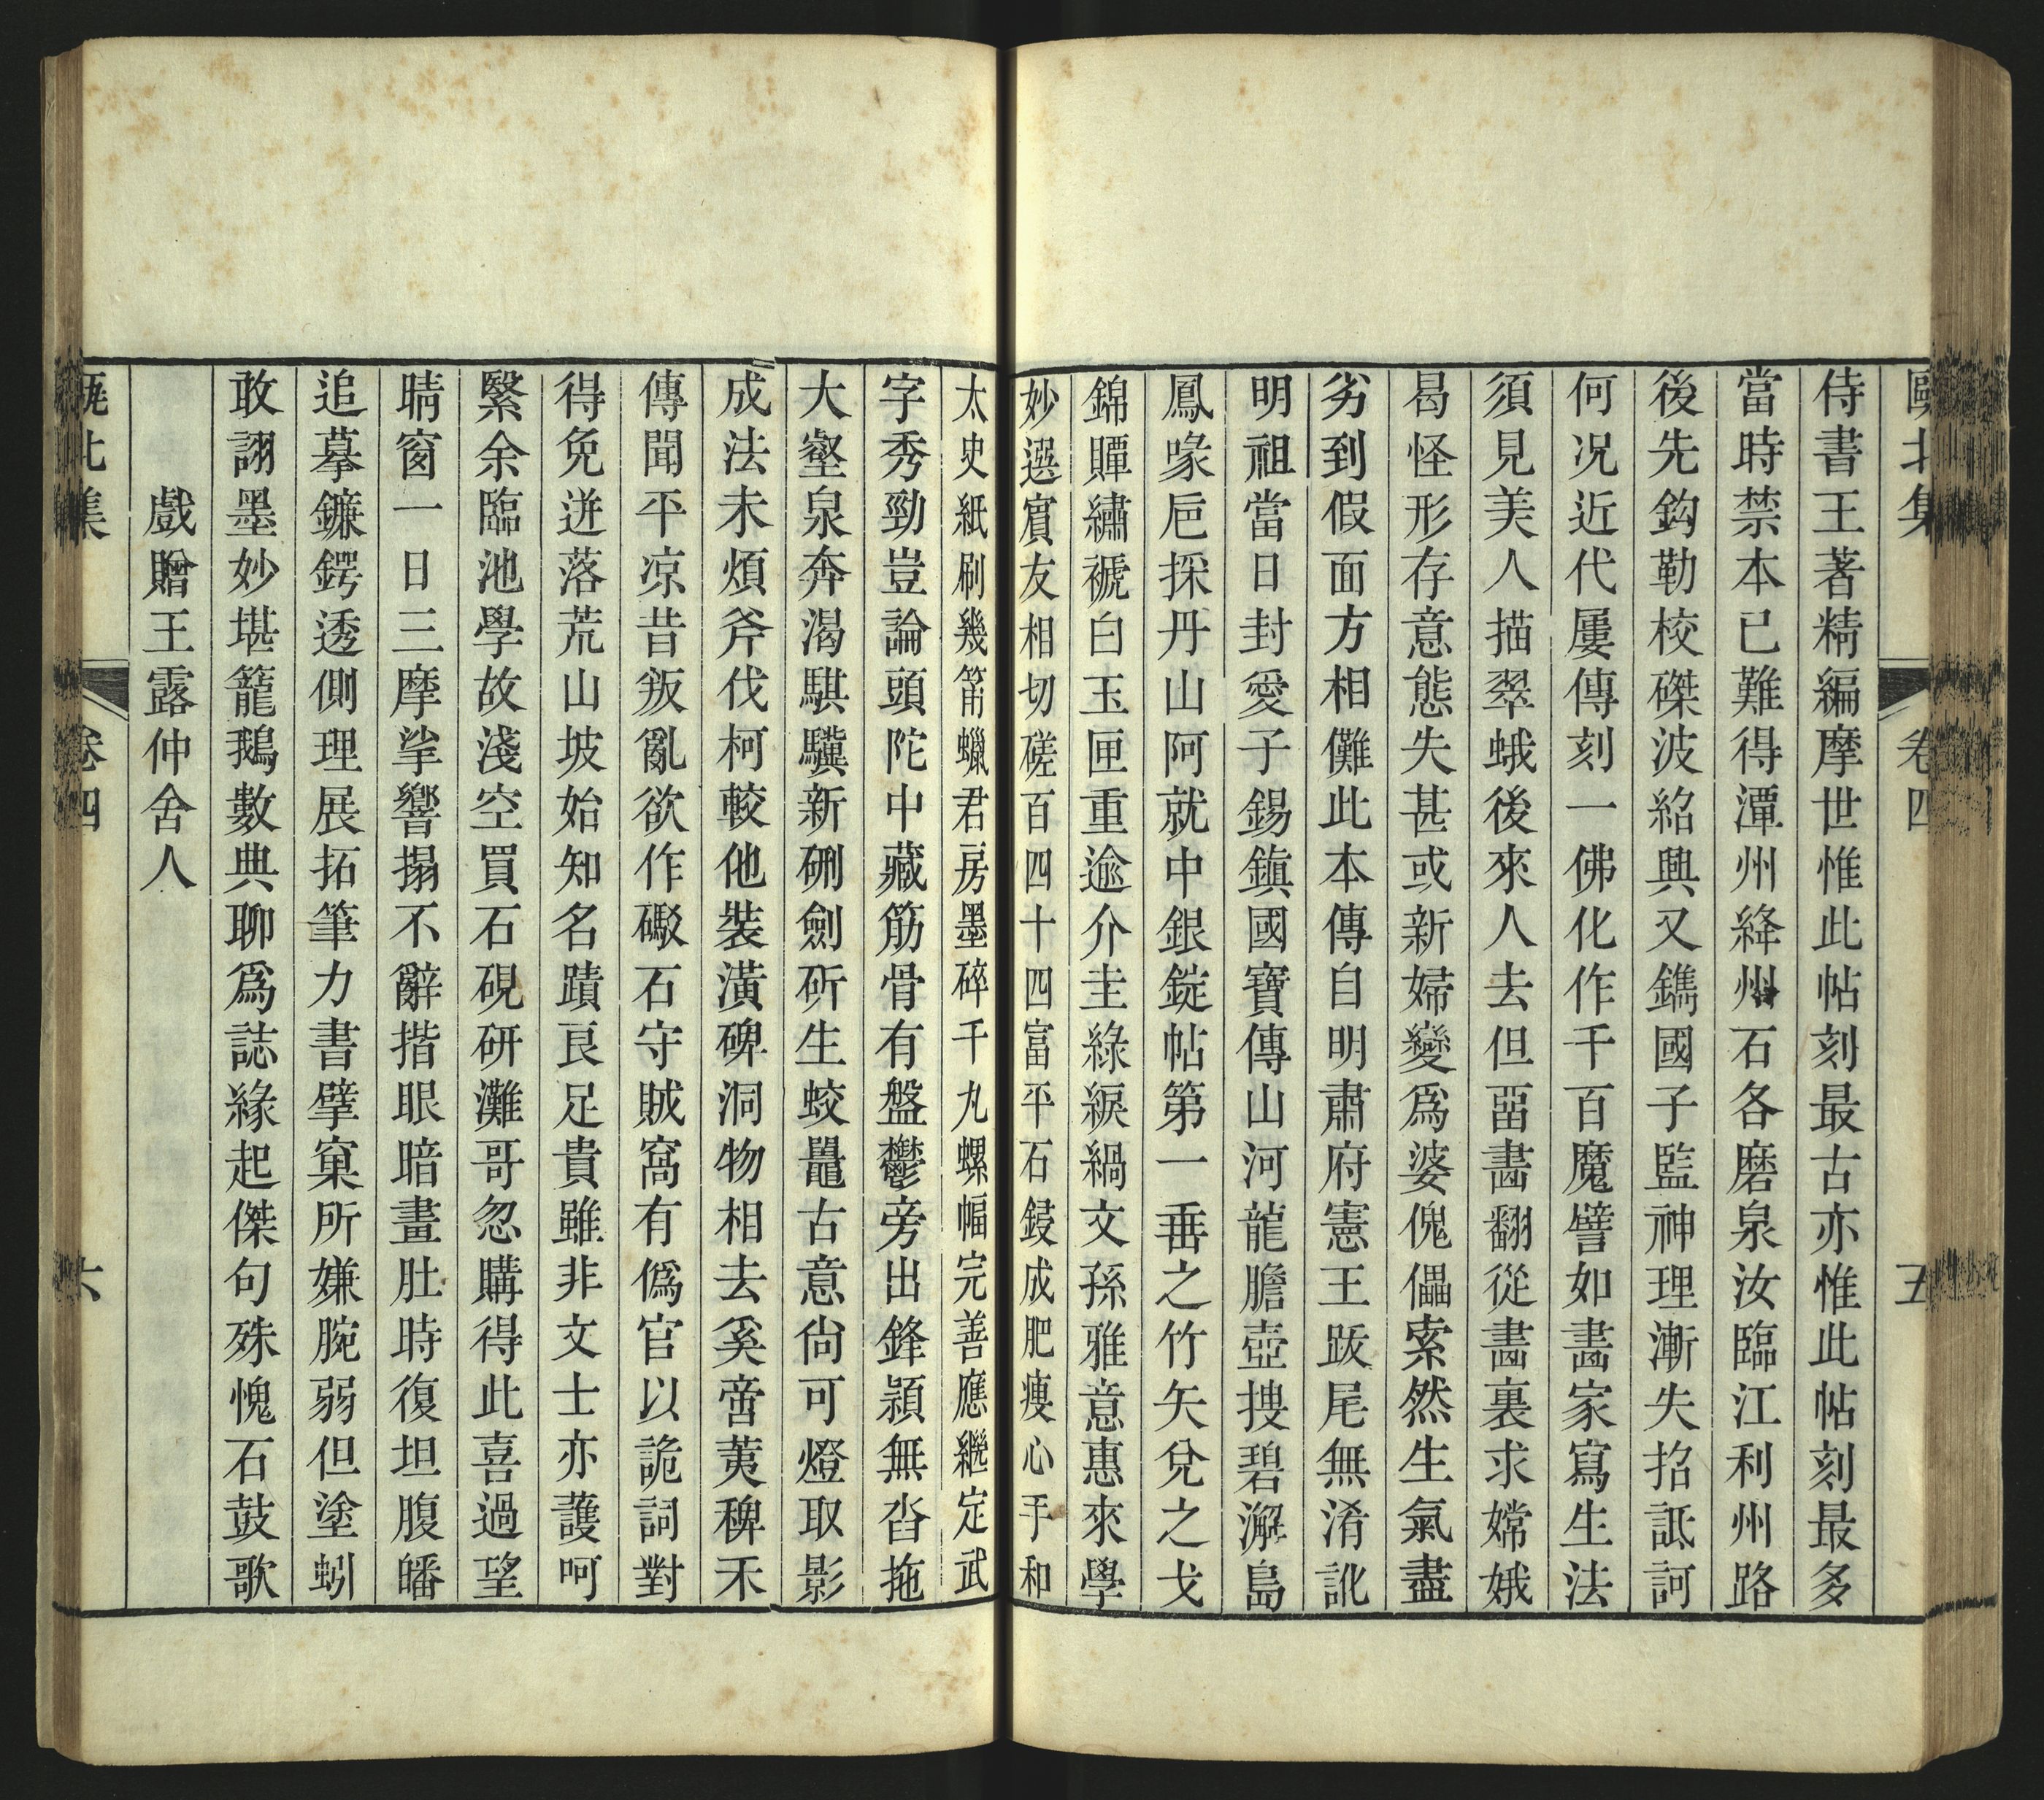 甌北集 卷四 五
侍書王著精編摩世惟此帖刻最古亦惟此帖刻最多
當時禁本已難得潭州絳州石各磨泉汝臨江利州路
後先鈎勒校磔波紹興又鐫國子監神理漸失招詆訶
何况近代屢傳刻一佛化作千百魔譬如畵家寫生法
須見美人描翠蛾後來人去但畱畵翻從畵裏求嫦娥
曷怪形存意態失甚或新婦變爲婆傀儡索然生氣盡
劣到假面方相儺此本傳自明肅府憲王跋尾無淆訛
明祖當日封愛子錫鎮國寶傳山河龍膽壺搜碧澥島
鳳喙巵探丹山阿就中銀錠帖第一垂之竹矢兌之戈
錦贉繡褫白玉匣重逾介圭綠綟緺文孫雅意惠來學
妙選賓友相切磋百四十四富平石鋟成肥瘦心手和
太史紙刷幾箭蠟君房墨碎千丸螺幅完善應繼定武
字秀勁豈論頭陀中藏筋骨有盤鬱旁出鋒潁無沓拖
大壑泉奔渴騏驥新硎劍斫生蛟鼉古意尙可燈取影
成法未煩斧伐柯較他裝潢碑洞物相去奚啻荑稗禾
傳聞平凉昔叛亂欲作礟石守賊窩有僞官以詭詞對
得免迸落荒山坡始知名蹟艮足貴雖非文士亦䕶呵
緊余臨池學故淺空買石硯研灘哥忽購得此喜過望
晴窗一日三摩挲響搨不辭揩眼暗畫肚時復坦腹皤
追摹鐮鍔透側理展拓筆力書擘窠所嫌腕弱但塗蚓
敢詡墨妙堪籠鵝數典聊爲誌緣起傑句殊愧石鼓歌
戲贈王露仲舍人
甌北集 卷四 六